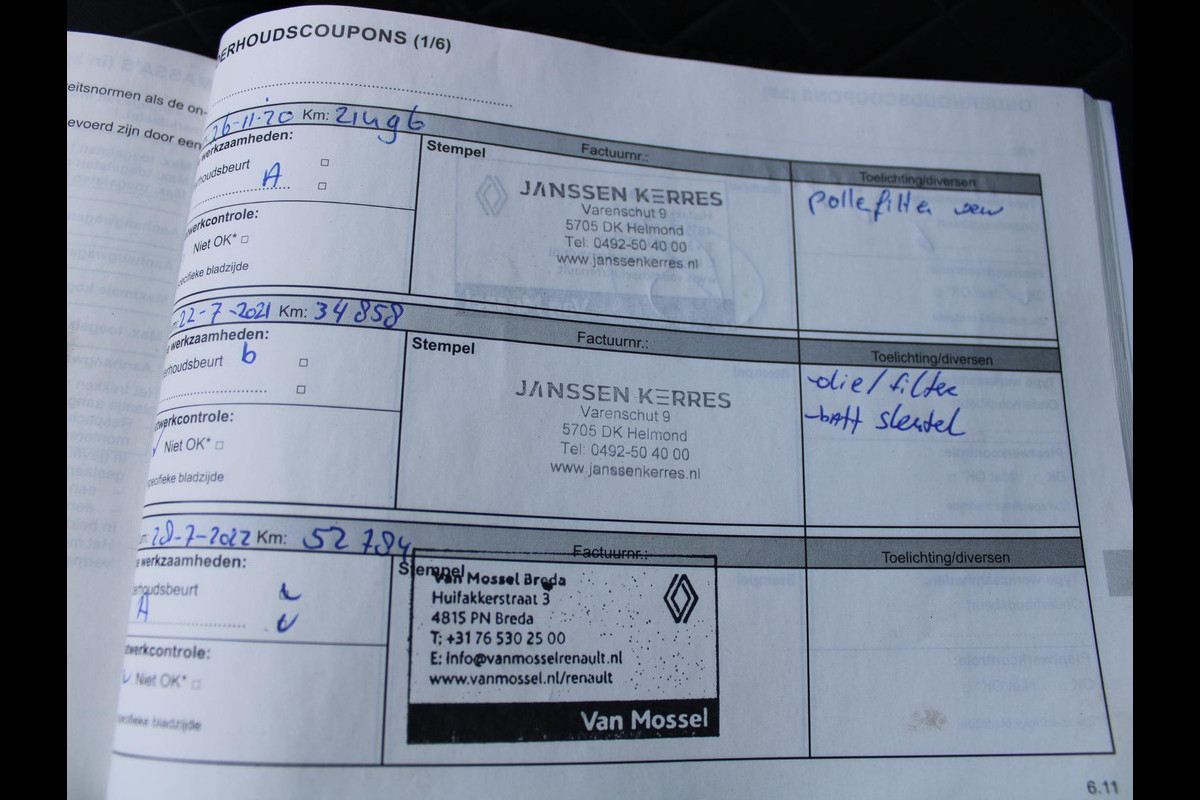 ERHOUDSCOUPONS (1/6)
eitsnormen als de on-
evoerd zijn door een
26-11-20 Km: 21496
werkzaamheden:
Stempel
Factuurnr.:
Toelichting/diversen
rhoudsbeurt
A
werkcontrole:
Niet OK*
specifieke bladzijde
JANSSEN KERRES
Varenschut 9
5705 DK Helmond
Tel: 0492-50 40 00
www.janssenkerres.nl
pollenfilter
22-7-2021 Km: 34858
werkzaamheden:
Stempel
Factuurnr.:
Toelichting/diversen
erhoudsbeurt b
twerkcontrole:
Niet OK*
pecifieke bladzijde
JANSSEN KERRES
Varenschut 9
5705 DK Helmond
Tel: 0492-50 40 00
www.janssenkerres.nl
-olie/filter
-batt sleutel
28-7-2022 Km: 52 784
e werkzaamheden:
Stempel
Factuurnr.:
Toelichting/diversen
erhoudsbeurt
A
twerkcontrole:
Niet OK*
pecifieke bladzijde
Van Mossel Breda
Huifakkerstraat 3
4815 PN Breda
T: +31 76 530 25 00
E: info@vanmosselrenault.nl
www.vanmossel.nl/renault
Van Mossel
6.11